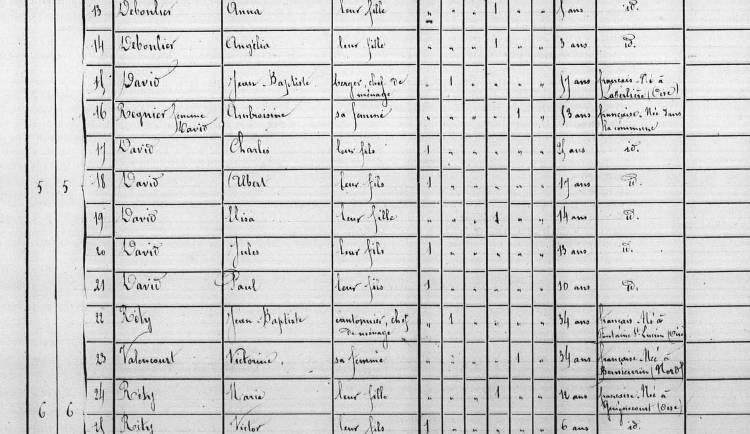 13 Deboulier Anna leur fille " " " 1 " " ans id.
14 Deboulier Angélia leur fille " " " 1 " " 3 ans id.
15 David Jean-Baptiste berger, chef de ménage " 1 " " " " 57 ans français. Né à (Oise)
16 Regnier femme David Ambroisine sa femme " " " " 1 " 53 ans française. Née dans la commune
17 David Charles leur fils 1 " " " " " 25 ans id.
5 5 18 David Albert leur fils 1 " " " " " 17 ans id.
19 David Elisa leur fille " " " 1 " " 14 ans id.
20 David Jules leur fils 1 " " " " " 13 ans id.
21 David Paul leur fils 1 " " " " " 10 ans id.
22 Réty Jean-Baptiste cantonnier, chef de ménage " 1 " " " " 34 ans français. Né à Fontaine St Lucien (Oise)
23 Valencourt Victorine, sa femme " " " " 1 " 34 ans française. Née à (Nord)
24 Réty Marie leur fille " " " 1 " " 12 ans française. Née à (Oise)
6 6 25 Réty Victor leur fils 1 " " " " " 6 ans id.